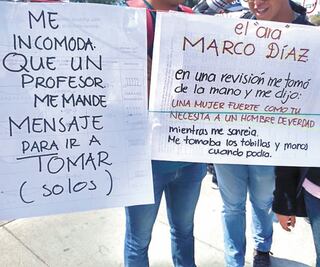 ME
INCOMODA:
QUE UN
PROFESOR
ME MANDE
MENSAJE
PARA IR A
TOMAR
(SOLOS)
el "día"
MARCO DÍAZ
en una revisión me tomó
de la mano y me dijo:
UNA MUJER FUERTE COMO TU
NECESITA A UN HOMBRE DE VERDAD
mientras me sonreia.
Me tomaba los tobillos y manos
cuando podia.